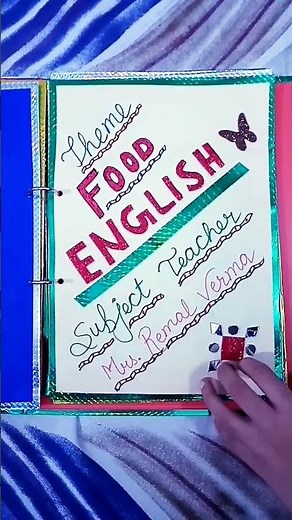 Theme
FOOD
ENGLISH
Subject Teacher
Mrs. Remal Verma